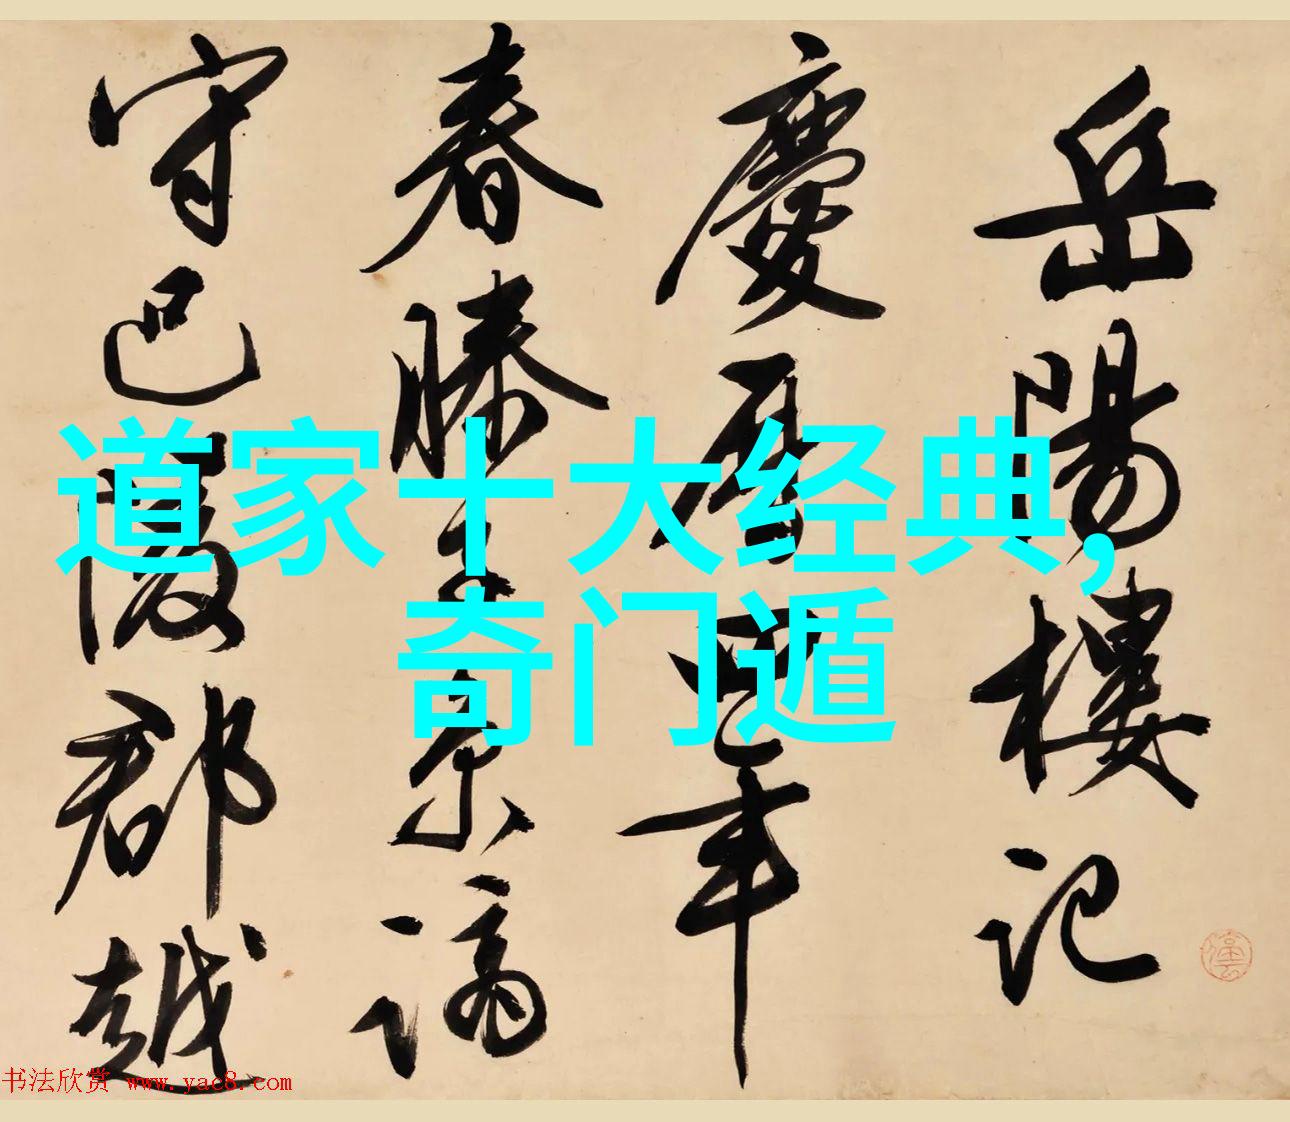 岳陽樓記
慶曆四年
春滕子京謫
守巴陵郡越
道家十大经典,
奇门遁
书法欣赏 www.yac8.com